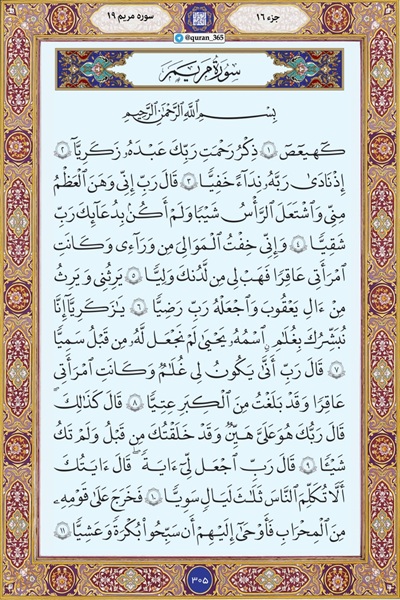 سوره مریم ۱۹
جزء ۱۶
@quran_365
سُورَةُ مَرْيَمَ
بِسْمِ اللَّهِ الرَّحْمَٰنِ الرَّحِيمِ
كٓهيعٓصٓ ۝١ ذِكْرُ رَحْمَتِ رَبِّكَ عَبْدَهُۥ زَكَرِيَّآ ۝٢
إِذْ نَادَىٰ رَبَّهُۥ نِدَآءً خَفِيًّا ۝٣ قَالَ رَبِّ إِنِّى وَهَنَ ٱلْعَظْمُ
مِنِّى وَٱشْتَعَلَ ٱلرَّأْسُ شَيْبًا وَلَمْ أَكُنۢ بِدُعَآئِكَ رَبِّ
شَقِيًّا ۝٤ وَإِنِّى خِفْتُ ٱلْمَوَٰلِىَ مِن وَرَآءِى وَكَانَتِ
ٱمْرَأَتِى عَاقِرًا فَهَبْ لِى مِن لَّدُنكَ وَلِيًّا ۝٥ يَرِثُنِى وَيَرِثُ
مِنْ ءَالِ يَعْقُوبَ وَٱجْعَلْهُ رَبِّ رَضِيًّا ۝٦ يَٰزَكَرِيَّآ إِنَّا
نُبَشِّرُكَ بِغُلَٰمٍ ٱسْمُهُۥ يَحْيَىٰ لَمْ نَجْعَل لَّهُۥ مِن قَبْلُ سَمِيًّا
۝٧ قَالَ رَبِّ أَنَّىٰ يَكُونُ لِى غُلَٰمٌ وَكَانَتِ ٱمْرَأَتِى
عَاقِرًا وَقَدْ بَلَغْتُ مِنَ ٱلْكِبَرِ عِتِيًّا ۝٨ قَالَ كَذَٰلِكَ
قَالَ رَبُّكَ هُوَ عَلَىَّ هَيِّنٌ وَقَدْ خَلَقْتُكَ مِن قَبْلُ وَلَمْ تَكُ
شَيْـًٔا ۝٩ قَالَ رَبِّ ٱجْعَل لِّىٓ ءَايَةً ۚ قَالَ ءَايَتُكَ
أَلَّا تُكَلِّمَ ٱلنَّاسَ ثَلَٰثَ لَيَالٍ سَوِيًّا ۝١٠ فَخَرَجَ عَلَىٰ قَوْمِهِۦ
مِنَ ٱلْمِحْرَابِ فَأَوْحَىٰٓ إِلَيْهِمْ أَن سَبِّحُوا۟ بُكْرَةً وَعَشِيًّا ۝١١
۳۰۵